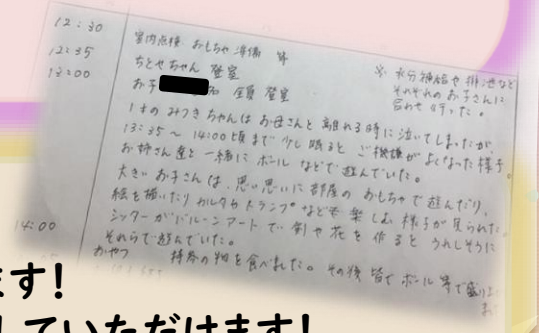 12:30 室内点検 おもちゃ準備 等
12:35 ちとせちゃん 登室
13:00 お子 名 全員 登室
※ 水分補給や排泄など
それぞれのお子さんに
合わせ 行った。
1才のみつきちゃんはお母さんと離れる時に泣いてしまったが、
13:35〜14:00頃まで少し眠ると ご機嫌がよくなった様子。
お姉さん達と一緒にボールなどで遊んでいた。
大きいお子さんは、思い思いに部屋のおもちゃで遊んだり、
絵を描いたりカルタやトランプなどを楽しむ様子が見られた。
シッターがバルーンアートで 剣や花を作ると うれしそうに
それらで遊んでいた。
14:00 おやつ 持参の物を食べました。その後 皆でボール等で
ます!
していただけます!